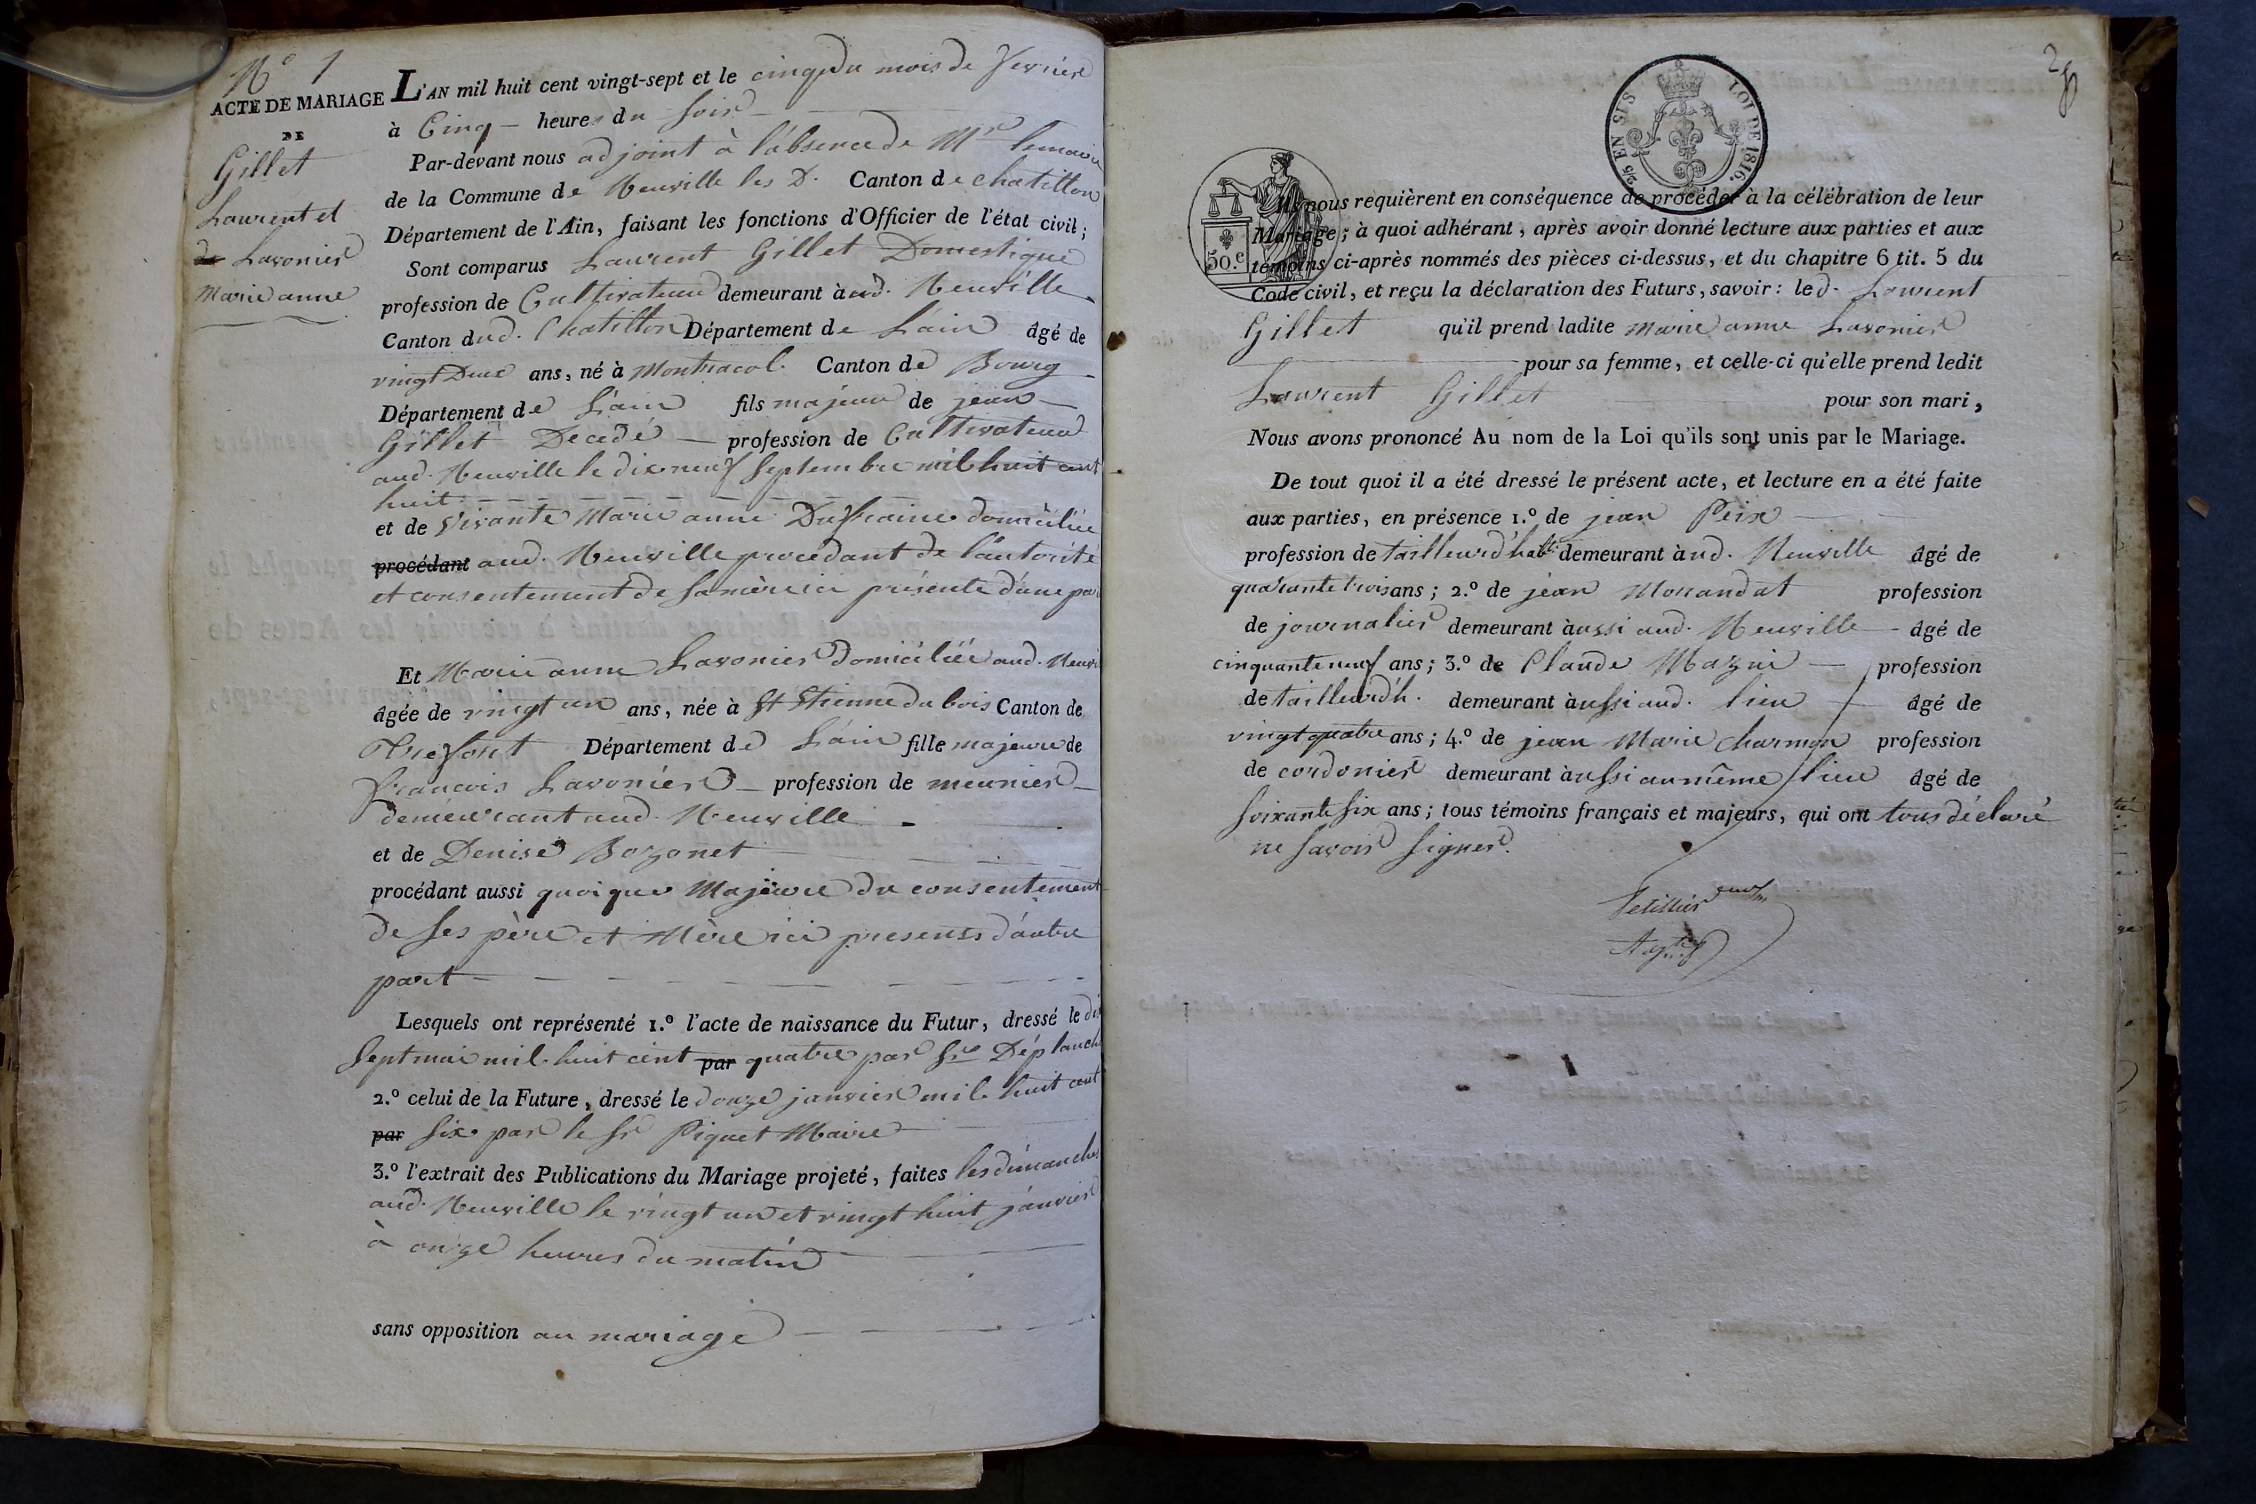 N° 1
ACTE DE MARIAGE
DE
Gillet
Laurent et
de Lavonier
Marie anne
L'AN mil huit cent vingt-sept et le cinq du mois de fevrier
à Cinq heures du soir
Par-devant nous adjoint à l'absence de Mr lemaire
de la Commune de Neuville les D. Canton de chatillon
Département de l'Ain, faisant les fonctions d'Officier de l'état civil;
Sont comparus Laurent Gillet Domestique
profession de Cultivateur demeurant à aud. Neuville
Canton dud. Chatillon Département de L'ain âgé de
vingt Deux ans, né à Montracol. Canton de Bourg
Département de L'ain fils majeur de jean
Gillet Decedé profession de Cultivateur
aud. Neuville le dix neuf Septembre mil huit cent
huit
et de vivante Marie anne Dufraine domiciliée
procédant aud. Neuville procédant de l'autorité
et consentement de sa mère ici présente d'une par
Et Marie anne Lavonier Domiciliée aud. Neuvi
âgée de vingt un ans, née à St Etienne du bois Canton de
Trefford Département de L'ain fille majeure de
francois Lavonier profession de meunier
demeurant aud. Neuville
et de Denise Bozonet
procédant aussi quoique Majeure du consentement
de ses père et Mère ici presents d'autre
part
Lesquels ont représenté 1.° l'acte de naissance du Futur, dressé le dix
Sept mai mil huit cent par quatre par Sr Déplanch
2.° celui de la Future, dressé le douze janvier mil huit cent
par six par le Sr Piquet Maire
3.° l'extrait des Publications du Mariage projeté, faites les dimanches
aud. Neuville le vingt un et vingt huit janvier
à onze heures du matin
sans opposition au mariage
28
25 EN SUS
LOI DE 1816.
50.c
Ils nous requièrent en conséquence de procéder à la célébration de leur
Mariage; à quoi adhérant, après avoir donné lecture aux parties et aux
témoins ci-après nommés des pièces ci-dessus, et du chapitre 6 tit. 5 du
Code civil, et reçu la déclaration des Futurs, savoir: led. Laurent
Gillet qu'il prend ladite Marie anne Lavonier
pour sa femme, et celle-ci qu'elle prend ledit
Laurent Gillet pour son mari,
Nous avons prononcé Au nom de la Loi qu'ils sont unis par le Mariage.
De tout quoi il a été dressé le présent acte, et lecture en a été faite
aux parties, en présence 1.° de jean Peix
profession de tailleur d'habt. demeurant à ud. Neuville âgé de
quarante trois ans; 2.° de jean Morandat profession
de journalier demeurant à ussi aud. Neuville âgé de
cinquante neuf ans; 3.° de Claude Mazuir profession
de tailleur d'h. demeurant à ussi aud. lieu âgé de
vingt quatre ans; 4.° de jean Marie Charmon profession
de cordonier demeurant à ussi au même lieu âgé de
soixante six ans; tous témoins français et majeurs, qui ont tous déclaré
ne savoir signer.